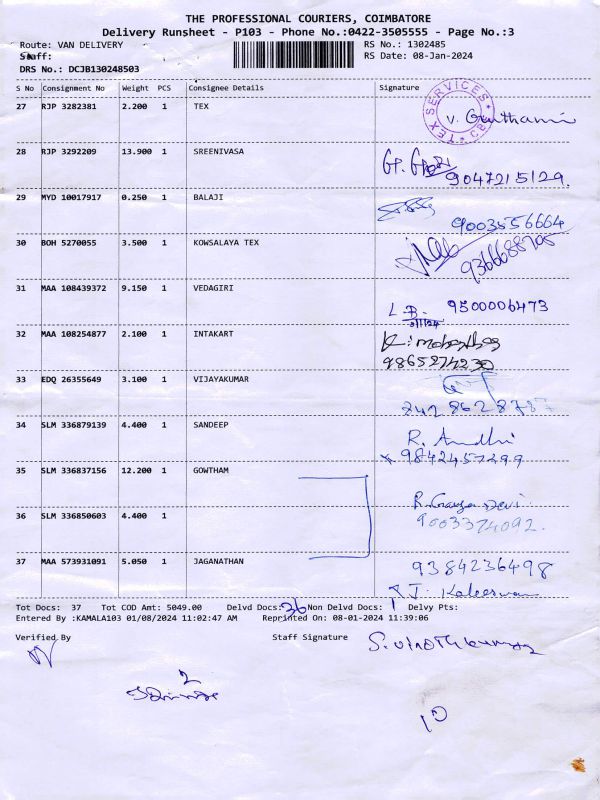 THE PROFESSIONAL COURIERS, COIMBATORE
Delivery Runsheet - P103 - Phone No.:0422-3505555 - Page No.:3
Route: VAN DELIVERY RS No.: 1302485
Staff: RS Date: 08-Jan-2024
DRS No.: DCJB130248503
S No Consignment No Weight PCS Consignee Details Signature
27 RJP 3282381 2.200 1 TEX
TEX SERVICES CBE
28 RJP 3292209 13.900 1 SREENIVASA
9047215129.
29 MYD 10017917 0.250 1 BALAJI
9003556664
30 BOH 5270055 3.500 1 KOWSALAYA TEX
9366688705
31 MAA 108439372 9.150 1 VEDAGIRI
L B. 9500006473
32 MAA 108254877 2.100 1 INTAKART
9865274230
33 EDQ 26355649 3.100 1 VIJAYAKUMAR
34 SLM 336879139 4.400 1 SANDEEP
R.
9842457299
35 SLM 336837156 12.200 1 GOWTHAM
Devi
36 SLM 336850603 4.400 1
9003374092.
37 MAA 573931091 5.050 1 JAGANATHAN
9384236498
J. Kaleeswari
Tot Docs: 37 Tot COD Amt: 5049.00 Delvd Docs: 36 Non Delvd Docs: 1 Delvy Pts:
Entered By :KAMALA103 01/08/2024 11:02:47 AM Reprinted On: 08-01-2024 11:39:06
Verified By Staff Signature S. Vinothkumar
2
10